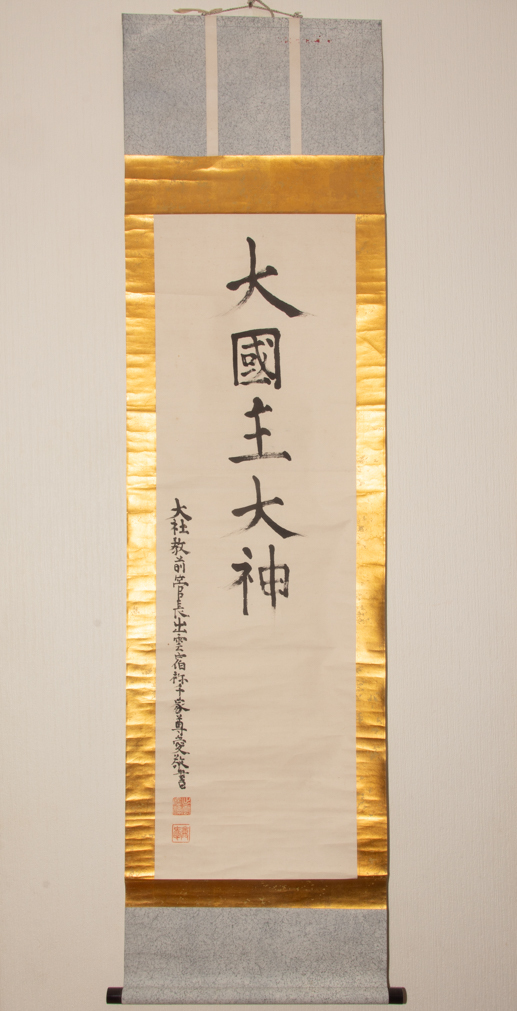 大國主大神
大社教前管長出雲宿祢千家尊愛敬書